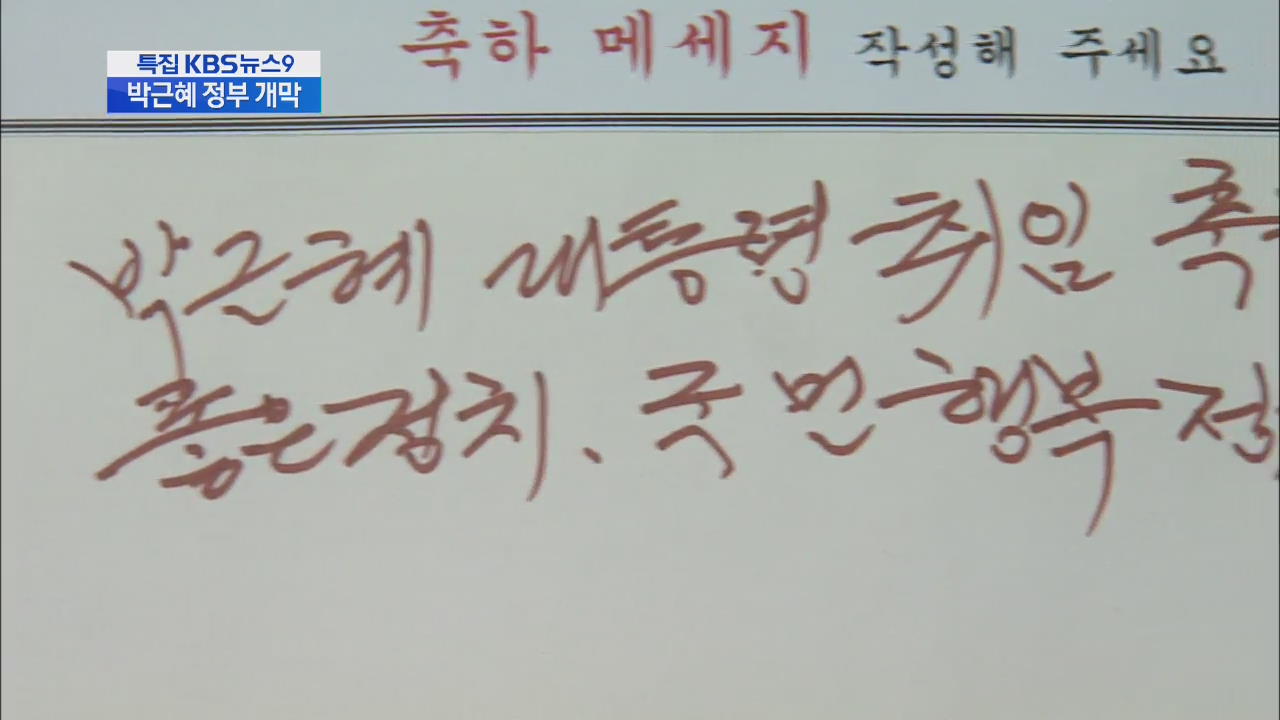 축하 메세지 작성해 주세요
특집 KBS뉴스9
박근혜 정부 개막
박근혜 대통령 취임 축
품은정치、국민행복